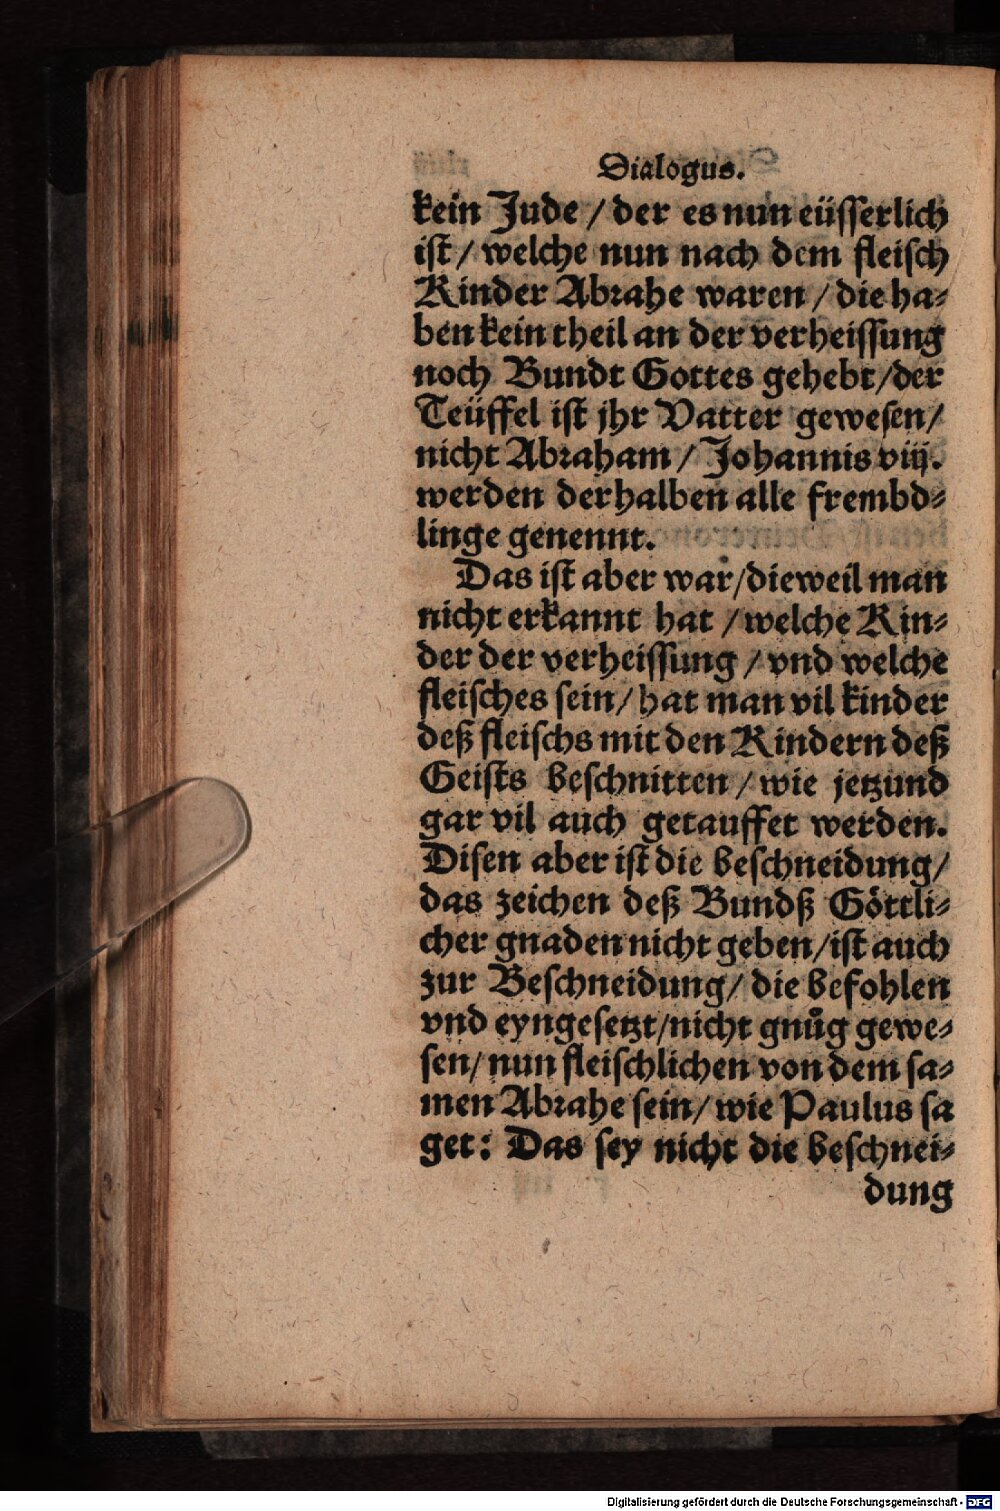 Dialogus.
kein Jude / der es nun eüsserlich
ist / welche nun nach dem fleisch
Kinder Abrahe waren / die ha⸗
ben kein theil an der verheissung
noch Bundt Gottes gehebt / der
Teüffel ist jhr Vatter gewesen /
nicht Abraham / Johannis viij.
werden derhalben alle frembd⸗
linge genennt.
Das ist aber war / dieweil man
nicht erkannt hat / welche Kin⸗
der der verheissung / vnd welche
fleisches sein / hat man vil kinder
deß fleischs mit den Kindern deß
Geists beschnitten / wie jetzund
gar vil auch getauffet werden.
Disen aber ist die beschneidung /
das zeichen deß Bundß Göttli⸗
cher gnaden nicht geben / ist auch
zur Beschneidung / die befohlen
vnd eyngesetzt / nicht gnůg gewe⸗
sen / nun fleischlichen von dem sa⸗
men Abrahe sein / wie Paulus sa
get: Das sey nicht die beschnei⸗
dung
Digitalisierung gefördert durch die Deutsche Forschungsgemeinschaft - DFG